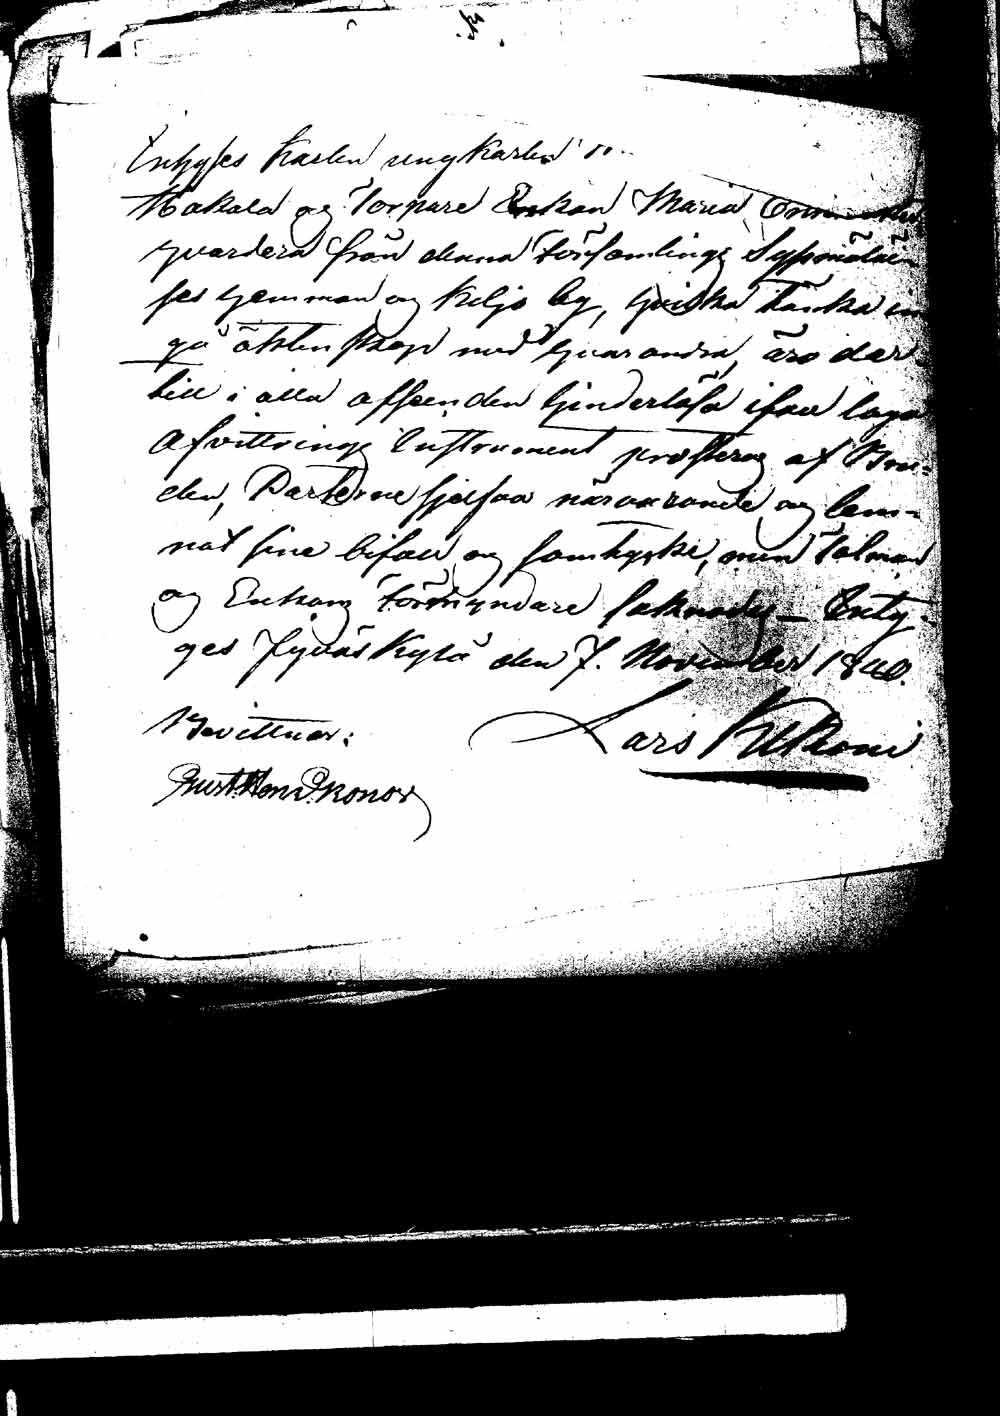 Inhyses Karlen ungkarlen
Makala og Torpare Enkan Maria
hvardera från denna Församlings
ses hemman og Keljo by, hvilka tänka in
gå äktenskap med hvarandra, äro där
till i alla afseenden hinderlösa ifall laga
Afvittrings Instrument presteras af Bru-
den, Parterne sjelfva närvarande og lem-
nat sine bifall og samtycke, men Talman
og Enkans Förmyndare saknades – Inty-
ges Jyväskylä den 7. November 1840.
Bevittnar:
Lars Kekoni